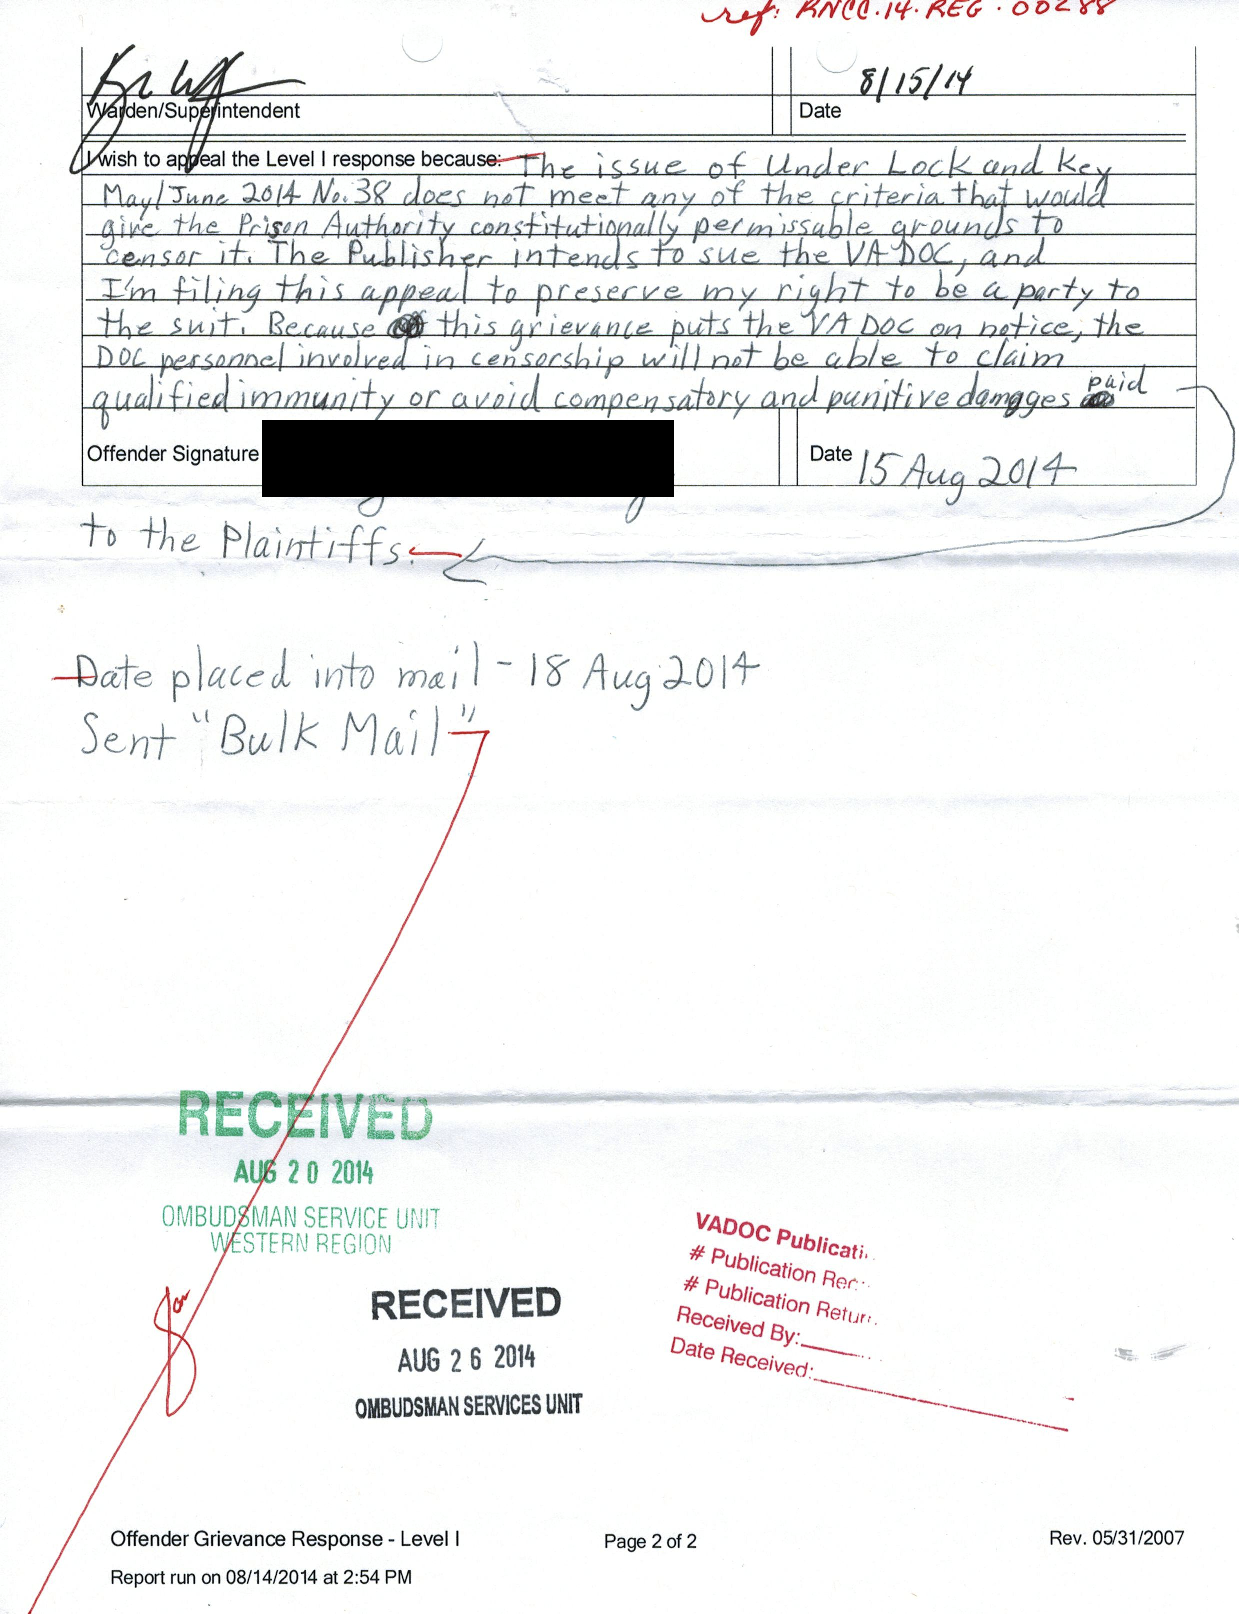 ref: KNCC.14.REG.00288
8/15/14
Warden/Superintendent
Date
I wish to appeal the Level I response because: The issue of Under Lock and Key
May/June 2014 No.38 does not meet any of the criteria that would
give the Prison Authority constitutionally permissable grounds to
censor it. The Publisher intends to sue the VA DOC, and
I'm filing this appeal to preserve my right to be a party to
the suit. Because this grievance puts the VA DOC on notice, the
DOC personnel involved in censorship will not be able to claim
qualified immunity or avoid compensatory and punitive damages paid
Offender Signature
Date 15 Aug 2014
to the Plaintiffs.
Date placed into mail - 18 Aug 2014
Sent "Bulk Mail"
RECEIVED
AUG 20 2014
OMBUDSMAN SERVICE UNIT
WESTERN REGION
RECEIVED
AUG 26 2014
OMBUDSMAN SERVICES UNIT
VADOC Publicati
# Publication Rec
# Publication Retur
Received By:
Date Received:
Offender Grievance Response - Level I
Page 2 of 2
Rev. 05/31/2007
Report run on 08/14/2014 at 2:54 PM